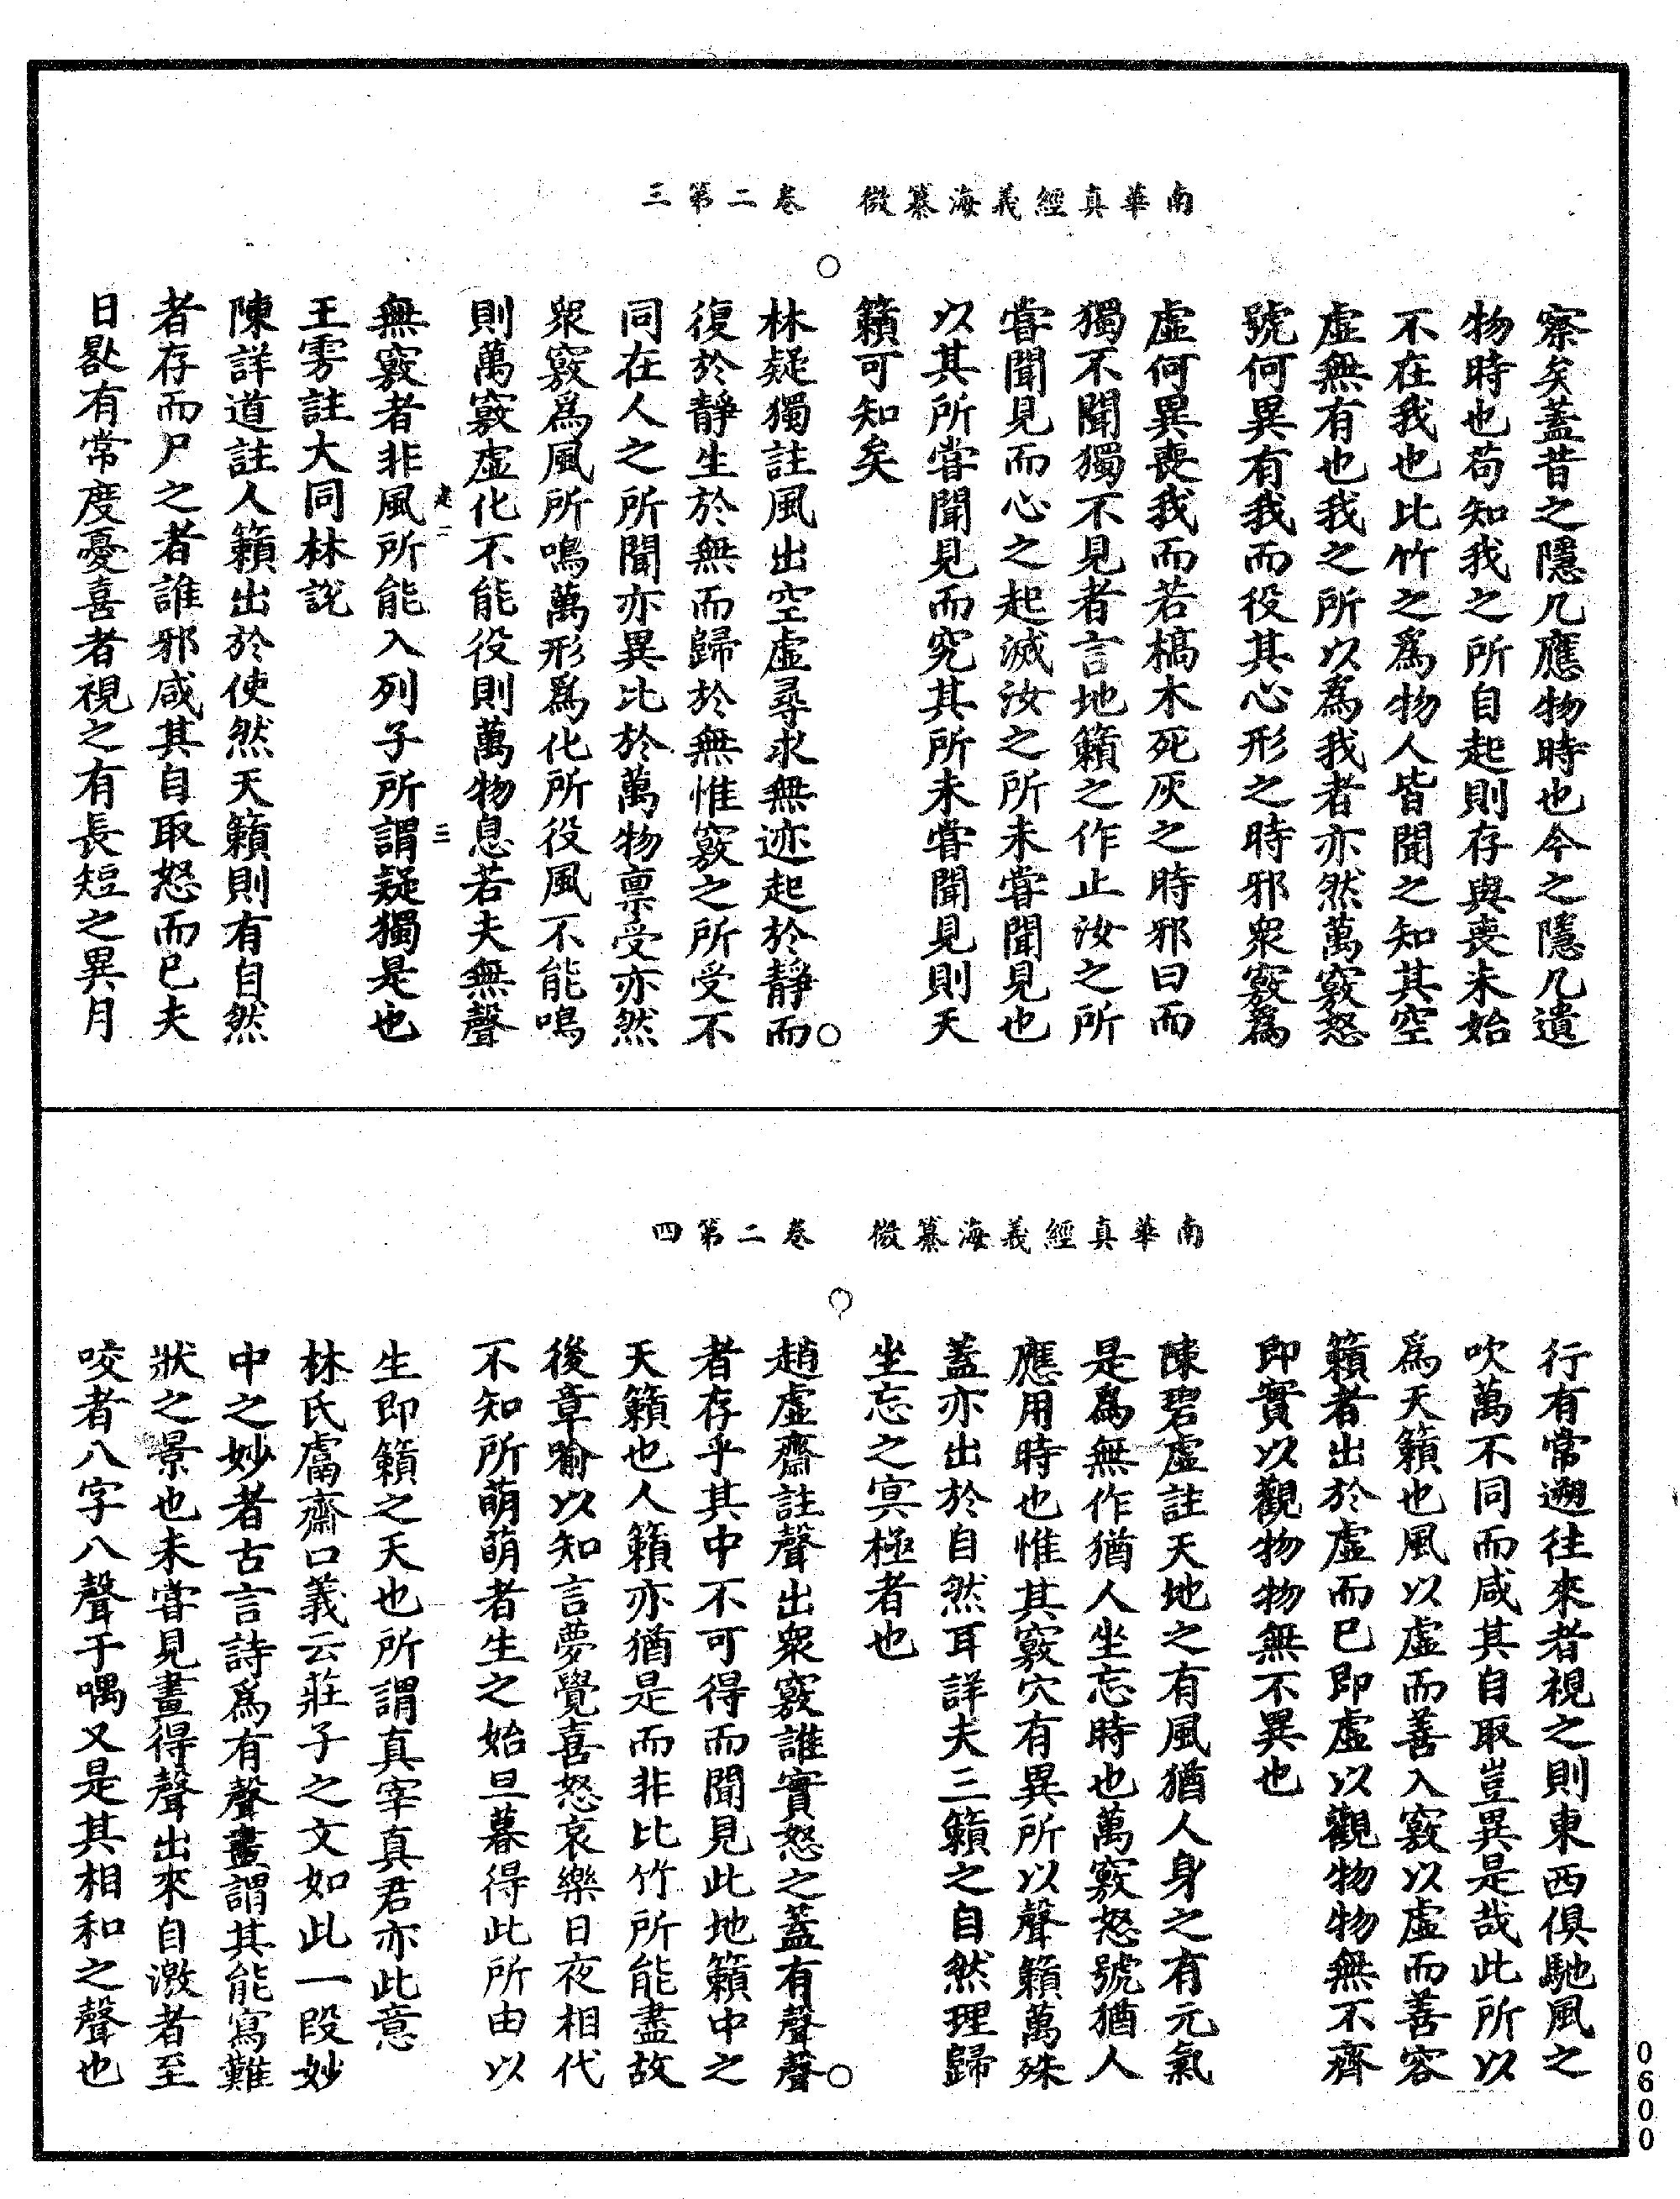 南華真經義海纂微　卷二第三
察矣蓋昔之隱几應物時也今之隱几遺
物時也苟知我之所自起則存與喪未始
不在我也比竹之爲物人皆聞之知其空
虛無有也我之所以爲我者亦然萬竅怒
號何異有我而役其心形之時邪衆竅爲
虛何異喪我而若槁木死灰之時邪曰而
獨不聞獨不見者言地籟之作止汝之所
嘗聞見而心之起滅汝之所未嘗聞見也
以其所嘗聞見而究其所未嘗聞見則天
籟可知矣
林疑獨註風出空虛尋求無迹起於靜而
復於靜生於無而歸於無惟竅之所受不
同在人之所聞亦異比於萬物禀受亦然
衆竅爲風所鳴萬形爲化所役風不能鳴
則萬竅虛化不能役則萬物息若夫無聲
無竅者非風所能入列子所謂疑獨是也
三
王雱註大同林說
陳詳道註人籟出於使然天籟則有自然
者存而尸之者誰邪咸其自取怒而已夫
日晷有常度憂喜者視之有長短之異月
南華真經義海纂微　卷二第四
行有常遡往來者視之則東西俱馳風之
吹萬不同而咸其自取豈異是哉此所以
爲天籟也風以虛而善入竅以虛而善容
籟者出於虛而已即虛以觀物物無不齊
即實以觀物物無不異也
陳碧虛註天地之有風猶人身之有元氣
是爲無作猶人坐忘時也萬竅怒號猶人
應用時也惟其竅穴有異所以聲籟萬殊
蓋亦出於自然耳詳夫三籟之自然理歸
坐忘之冥極者也
趙虛齋註聲出衆竅誰實怒之蓋有聲聲
者存乎其中不可得而聞見此地籟中之
天籟也人籟亦猶是而非比竹所能盡故
後章喻以知言夢覺喜怒哀樂日夜相代
不知所萌萌者生之始旦暮得此所由以
生即籟之天也所謂真宰真君亦此意
林氏鬳齋口義云莊子之文如此一段妙
中之妙者古言詩爲有聲畫謂其能寫難
狀之景也未嘗見畫得聲出來自激者至
咬者八字八聲于喁又是其相和之聲也
0600